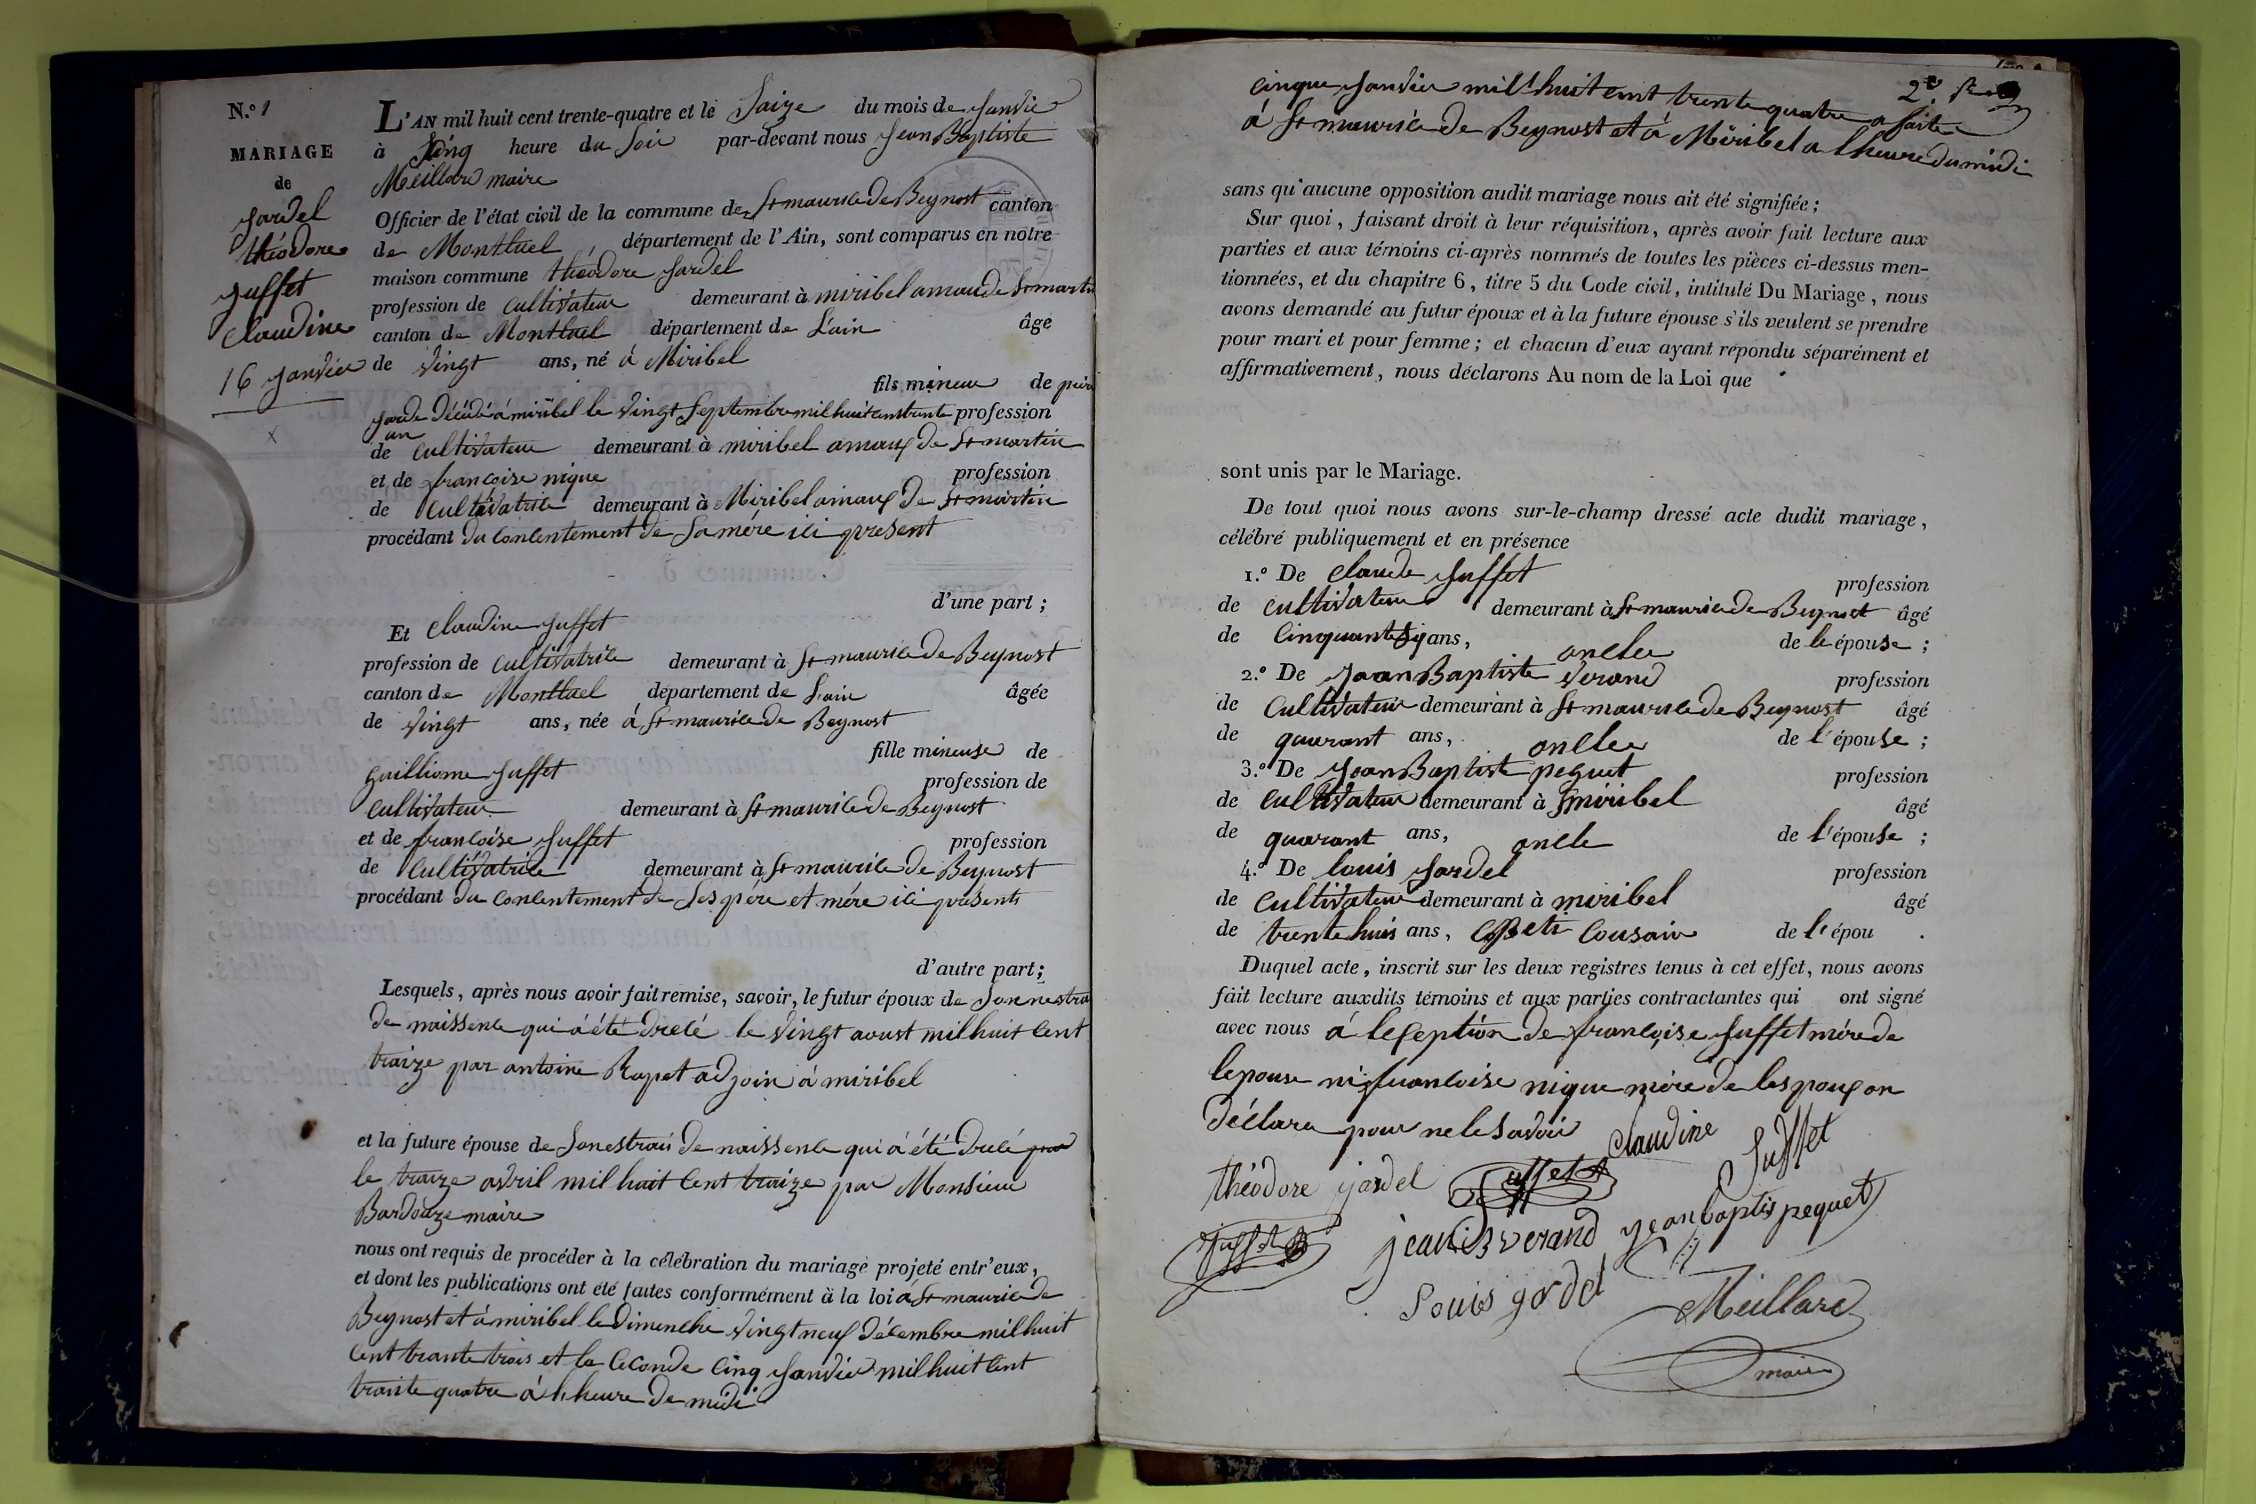 N.º 1
MARIAGE
de
jardel
théodore
juffet
Claudine
16 janvier
L'AN mil huit cent trente-quatre et le Saize du mois de janvie
à Sinq heure du Soir par-devant nous jean Baptiste
Meillard maire
Officier de l'état civil de la commune de St maurice de Beynost canton
de Montluel département de l'Ain, sont comparus en notre
maison commune théodore jardel
profession de Cultivateur demeurant à miribel amaude St martin
canton de Montluel département de L'ain âgé
de vingt ans, né á Miribel
fils mineur de
décédé á miribel le vingt Septembre mil huit cent trente profession
un
de cultivateur demeurant à miribel amaux de St martin
et de francoise nique profession
de Cultivatrice demeurant à Miribel amaux de St martin
procédant du Consentement de Sa mére ici present
d'une part ;
Et Claudine juffet
profession de Cultivatrice demeurant à St maurice de Beynost
canton de Montluel département de L'ain âgée
de vingt ans, née á St maurice de Beynost
fille mineuse de
guilliome juffet profession de
Cultivateur demeurant à St maurice de Beynost
et de francoise juffet profession
de Cultivatrice demeurant à St maurice de Beynost
procédant du Consentement de Ses pére et mére ici présents
d'autre part ;
Lesquels, après nous avoir fait remise, savoir, le futur époux de Son nestra
de naissence qui á été drecé le vingt aoust mil huit Cent
traize par antoine Rapet adjoin á miribel
et la future épouse de Sonestrais de naissence qui á été drecé
le traize avril mil huit Cent traize par Monsieur
Bardouze maire
nous ont requis de procéder à la célébration du mariage projeté entr'eux,
et dont les publications ont été faites conformément à la loi á St maurice de
Beynost et á miribel le dimenche vingt neuf décembre mil huit
Cent trante trois et la Ceconde Cinq janvier mil huit Cent
trante quatre á lheure de midi
2e.
Cinque janvier mil huit cent trente quatre a faite
á St maurice de Beynost et á Miribel a lheure du midi
sans qu'aucune opposition audit mariage nous ait été signifiée ;
Sur quoi, faisant droit à leur réquisition, après avoir fait lecture aux
parties et aux témoins ci-après nommés de toutes les pièces ci-dessus men-
tionnées, et du chapitre 6, titre 5 du Code civil, intitulé Du Mariage, nous
avons demandé au futur époux et à la future épouse s'ils veulent se prendre
pour mari et pour femme ; et chacun d'eux ayant répondu séparément et
affirmativement, nous déclarons Au nom de la Loi que
sont unis par le Mariage.
De tout quoi nous avons sur-le-champ dressé acte dudit mariage,
célébré publiquement et en présence
1.º De Claude juffet profession
de Cultivateur demeurant à St maurice de Beynost âgé
de ans, oncle de le épouse ;
2.º De jean Baptiste verand profession
de Cultivateur demeurant à St maurice de Beynost âgé
de quarant ans, oncle de l'épouse ;
3.º De jean Baptiste peguet profession
de Cultivateur demeurant à miribel âgé
de quarant ans, oncle de l'épouse ;
4.º De louis jardel profession
de Cultivateur demeurant à miribel âgé
de trente huis ans, Cousain de l'épou .
Duquel acte, inscrit sur les deux registres tenus à cet effet, nous avons
fait lecture auxdits témoins et aux parties contractantes qui ont signé
avec nous á leseption de francoise juffet mére de
lepouse ni francoise nique mére de lespoux on
déclara pour ne le savoir
théodore jardel juffet Claudine juffet
juffet jean B verand jean baptis peguet
Louis jardel Meillard
maire